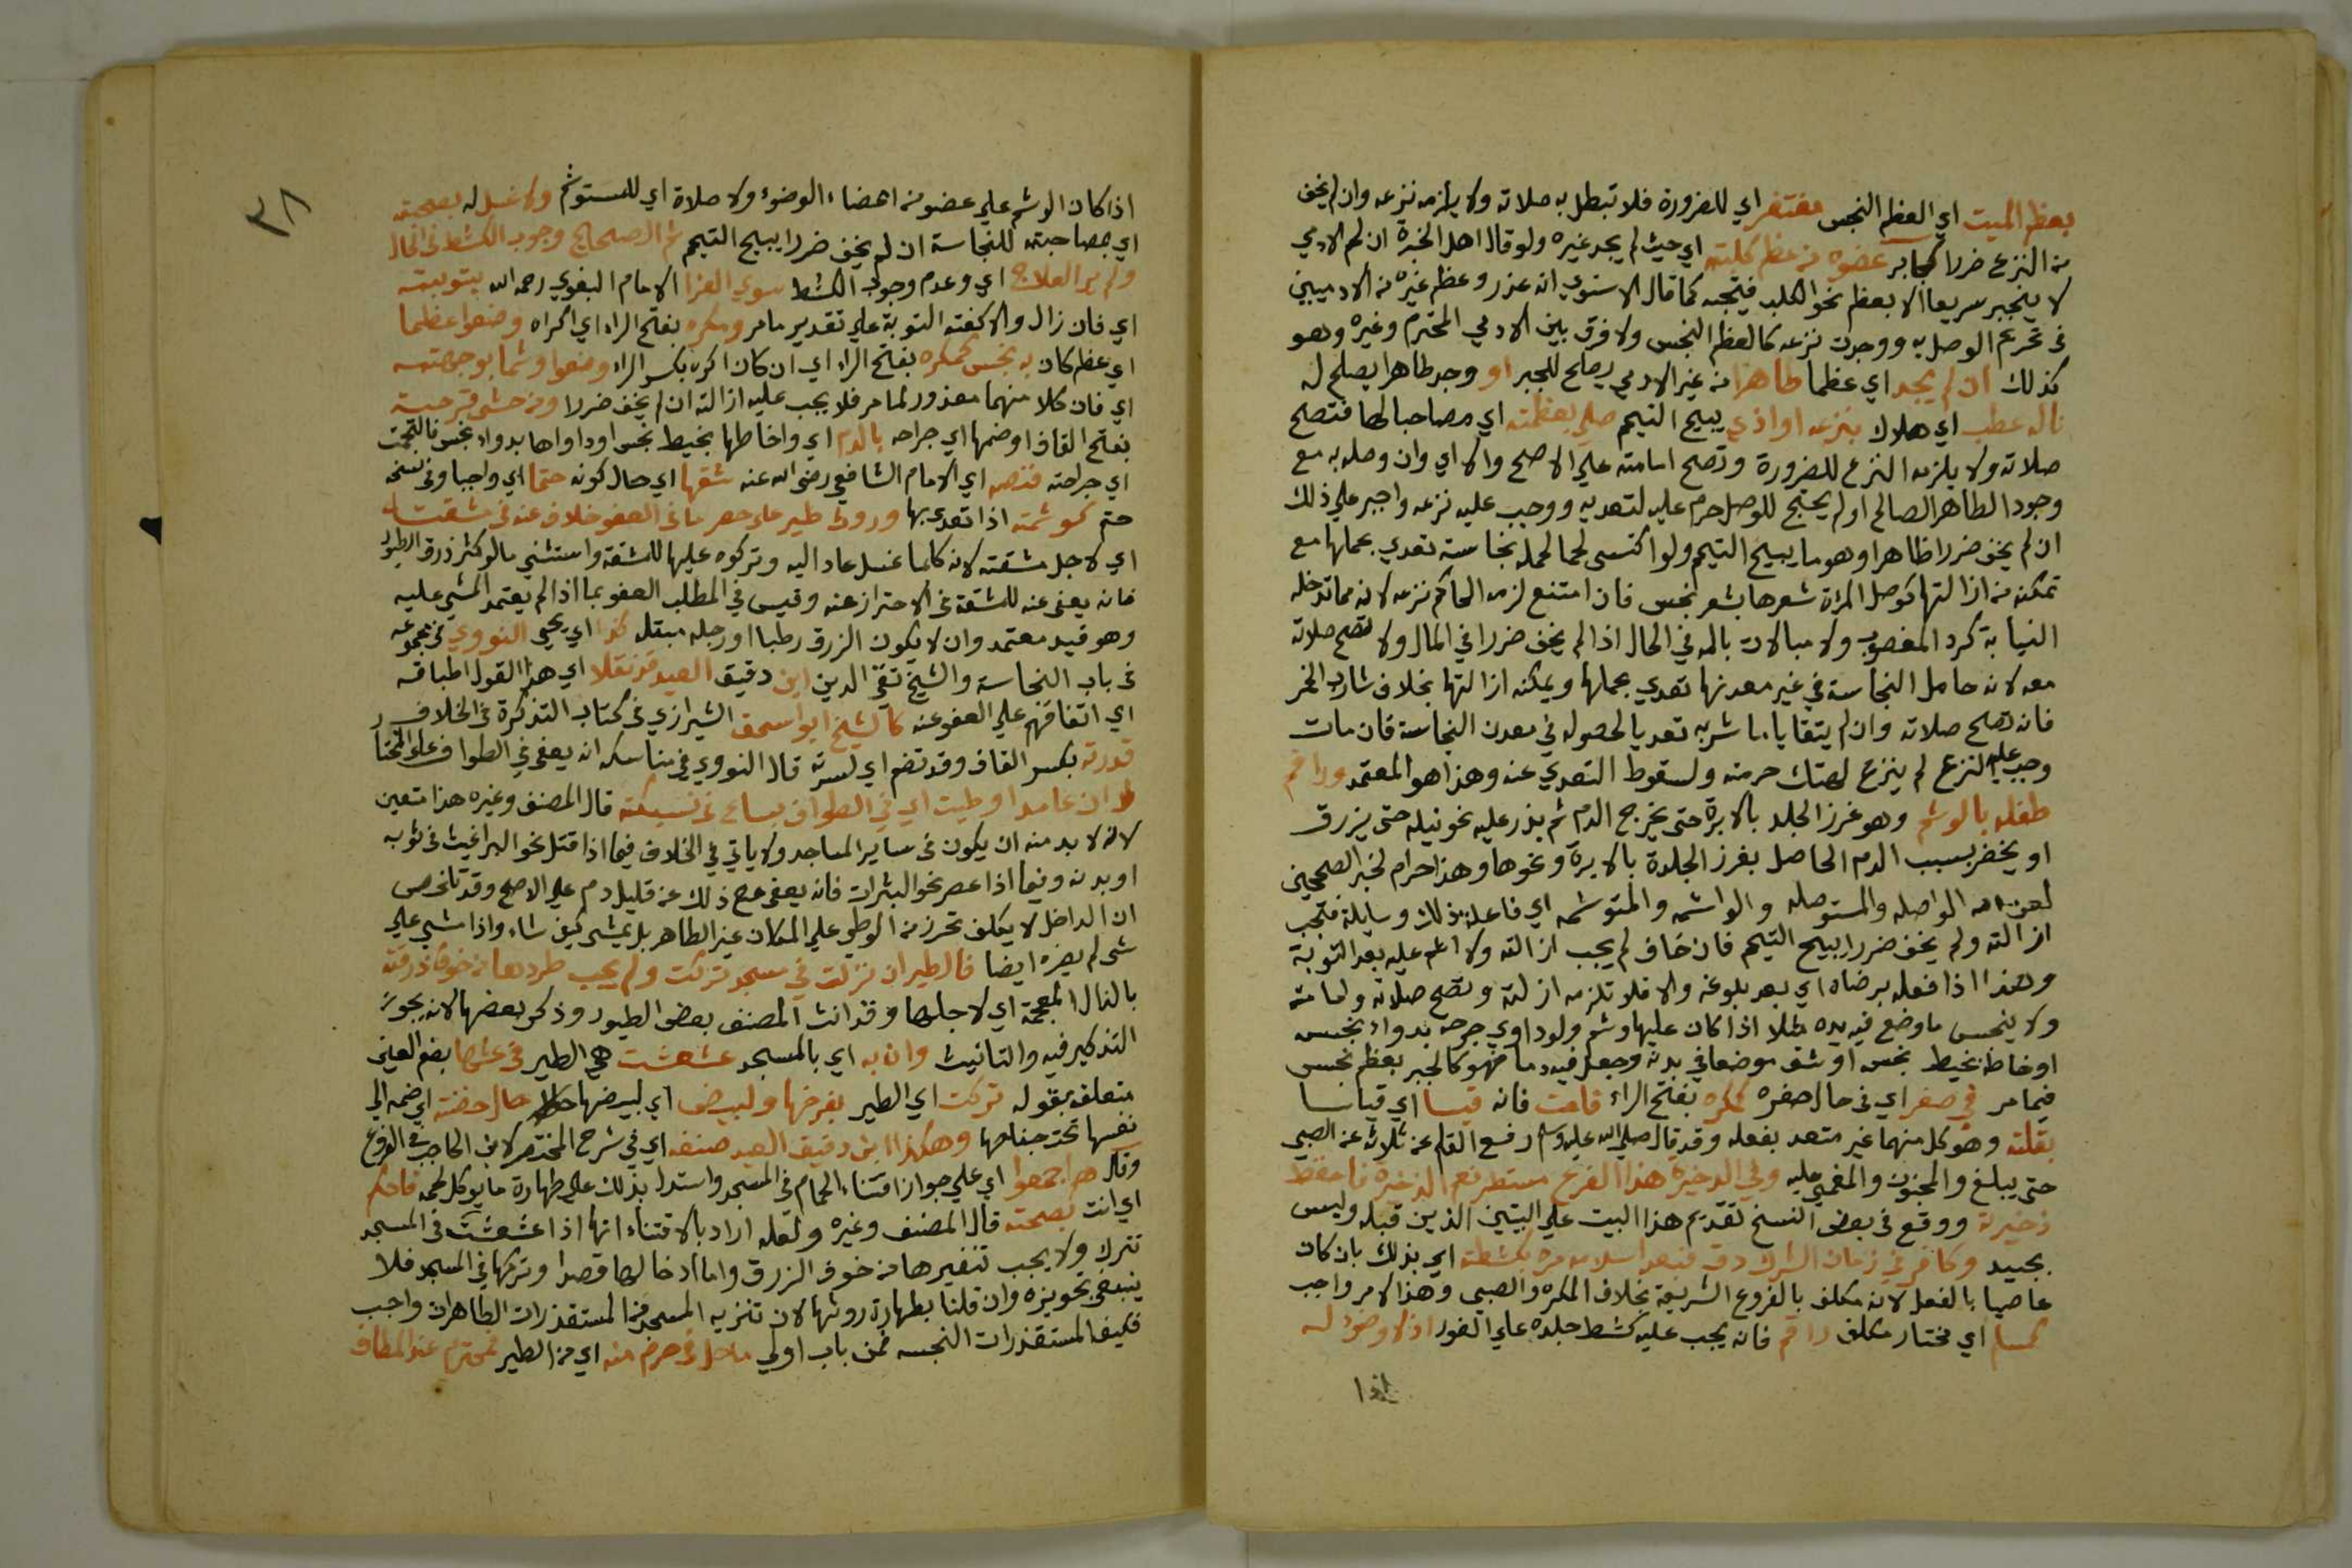 بعظم الميت اي العظم النجس مغتفر اي للضرورة فلا تبطل به صلاته ولا يلزمه نزعه وان لم يخف
من النزع ضررا كجابر عضوه من عظم كلبته اي حيث لم يجد غيره ولو قال اهل الخبرة ان لحم الادمي
لا ينجبر سريعا الا بعظم نحو الكلب فيتجه كما قال الاسنوي انه عذر وعظم غيره من الادميين
في تحريم الوصل به ووجوب نزعه كالعظم النجس ولا فرق بين الادمي المحترم وغيره وهو
كذلك ان لم يجد اي عظما طاهرا من غير الادمي يصلح للجبر او وجد طاهرا يصلح له
ناله عطب اي هلاك بنزعه او اذي يبيح التيمم صلي بعظمته اي مصاحبا لها فتصح
صلاته ولا يلزمه النزع للضرورة وتصح امامته علي الاصح والا اي وان وصله به مع
وجود الطاهر الصالح او لم يحتج للوصل حرم عليه لتعديه ووجب عليه نزعه واجبر علي ذلك
ان لم يخف ضررا ظاهرا وهو ما يبيح التيمم ولو اكتسى لحما لحمله نجاسة تعدي بحملها مع
تمكنه من ازالتها كوصل المرة شعرها بشعر نجس فان امتنع لزمه الحاكم نزعه لانه مما تدخله
النيابة كرد المغصوب ولا مبالات بالمه في الحال اذا لم يخف ضررا في المال ولا تصح صلاته
معه لانه حامل النجاسة في غير معدنها تعدي بحملها ويمكنه ازالتها بخلاف شارب الخمر
فانه تصح صلاته وان لم يتقايا ما شربه تعديا لحصوله في معدن النجاسة فان مات
وجب عليه النزع لم ينزع لهتك حرمته ولسقوط التعدي عنه وهذا هو المعتمد وراقم
طفله بالوشم وهو غرز الجلد بالابرة حتى يخرج الدم ثم يذر عليه نحو نيله حتى يزرق
او يخضر بسبب الدم الحاصل بغرز الجلدة بالابرة ونحوها وهذا حرام لخبر الصحيحين
لعن الله الواصله والمستوصله والواشمه والمتوشمه اي فاعلة ذلك وسايلته فتجب
ازالته ولم يخف ضررا يبيح التيمم فان خاف لم يجب ازالته ولا اثم عليه بعد التوبة
وهذا اذا فعله برضاه اي بعد بلوغه والا فلا تلزمه ازلته وتصح صلاته وامامته
ولا ينجس ما وضع فيه يده مثلا اذا كان عليها وشم ولو داوي جرحه بدواء نجس
او خاطه بخيط نجس او شق موضعا في بدنه وجعل فيه دما فهو كالجبر بعظم نجس
فيما مر في صغر اي في حال صغره كمكره بفتح الراء قامت فانه قيسا اي قياسا
بقلته وهو كل منهما غير متعد بفعله وقد قال صلى الله عليه وسلم رفع القلم عن ثلاث عن الصبي
حتى يبلغ والمجنون والمغمي عليه وفي الدخيرة هذا الفرع مستطر نعم الذخيرة فاحفظ
ذخيرته ووقع في بعض النسخ تقديم هذا البيت علي البيتين الذين قبله وليس
بجيد وكافر في زمان الشرك دق فبعد اسلامه مره بكشطته اي بذلك بان كان
عاصيا بالفعل لانه مكلف بالفروع الشريعة بخلاف المكره والصبي وهذا الامر واجب
كمسلم اي مختار مكلف راقم فانه يجب عليه كشط جلده علي الفور اذ لا وضوء له
اذا
٣٨
اذا كان الوشم علي عضو من اعضاء الوضوء ولا صلاة اي للمستوشم ولا غسل له بصحبته
اي بمصاحبته للنجاسة ان لم يخف ضررا يبيح التيمم ثم الصحايح وجوب الكشط في الحال
ولم ير العلاج اي وعدم وجوب الكشط سوي الفرا الامام البغوي رحمه الله بتوبته
اي فان زال والا كفته التوبة علي تقدير ما مر ومكره بفتح الراء اي اكراه وضعوا عظما
اي عظم كان به نجس كمكره بفتح الراء اي ان كان اكره بكسر الراء وضعوا وشما بوجهته
اي فان كلا منهما معذور لما مر فلا يجب عليه ازالته ان لم يخف ضررا ومن حشى قرحته
بفتح القاف او ضمها اي جراحه بالدم اي واخاطها بخيط نجس او داواها بدواء نجس فالتحمت
اي جراحته فنصه اي الامام الشافعي رضى الله عنه شقها اي حال كونه حتما اي واجبا وفي نسخة
حتم كموشمته اذا تعدي بها وروث طير علي حصر ما في العفو خلاف عنه في مشقته
اي لاجل مشقته لانه كلما غسل عاد اليه وتركوه عليها للمشقة واستثني ما لو كثر ذرق الطيور
فانه يعفى عنه للمشقة في الاحتراز عنه وقيس في المطلب العفو بما اذا لم يعتمد المشي عليه
وهو قيد معتمد وان لا يكون الزرق رطبا او رجله مبتله كذا اي يحيى النووي في مجموعه
في باب النجاسة والشيخ تقي الدين ابن دقيق العيد قد نقلا اي هذا القول اطباقه
اي اتفاقهم علي العفو عنه كالشيخ ابو اسحق الشيرازي في كتاب التذكرة في الخلاف
قدرته بكسر القاف وقد تضم اي لسرته قال النووي في مناسكه انه يعفى في الطواف علي المختار
وان عامدا وطيت اي في الطواف يسامح في نسيكته قال المصنف وغيره هذا متعين
لانه لا بد منه ان يكون في ساير المساجد ولا ياتي في الخلاف فيما اذا قتل نحو البراغيث في ثوبه
او بدنه وفيما اذا عصر نحو البثرات فانه يعفى مع ذلك عن قليل دم علي الاصح وقد تلخص
ان الداخل لا يكلف تحرز من الوطي علي المكان غير الطاهر بل يمشي كيف شاء واذا مشي علي
شي لم يضره ايضا فالطير ان نزلت في مسجد تركت ولم يجب طردها من خوف ذرقته
بالذال المعجمة اي لاجلها وقد انث المصنف بعض الطيور وذكر بعضها لانه يجوز
التذكير فيه والتانيث وان به اي بالمسجد عشعشت هي الطير في عشها بضم العين
متعلق بقوله تركت اي الطير بفرخها ولبيض اي لبيضها حال حضنته اي ضمه الي
نفسها تحت جناحها وهكذا ابن دقيق العيد صنفه اي في شرح المختصر لابن الحاجب في الفروع
وقال هم اجمعوا اي علي جواز اقتناء الحمام في المسجد واستدل بذلك علي طهارة ما يوكل لحمه فاحكم
اي انت بصحته قال المصنف وغيره ولعله اراد بالاقتناء انها اذا عشعشت في المسجد
تترك ولا يجب تنفيرها من خوف الزرق واما ادخالها قصدا وتركها في المسجد فلا
ينبغي تجويزه وان قلنا بطهارة روثها لان تنزيه المسجد من المستقذرات الطاهرات واجب
فكيف المستقذرات النجسه فمن باب اولي ماحل في حرم منه اي من الطير عند المطاف